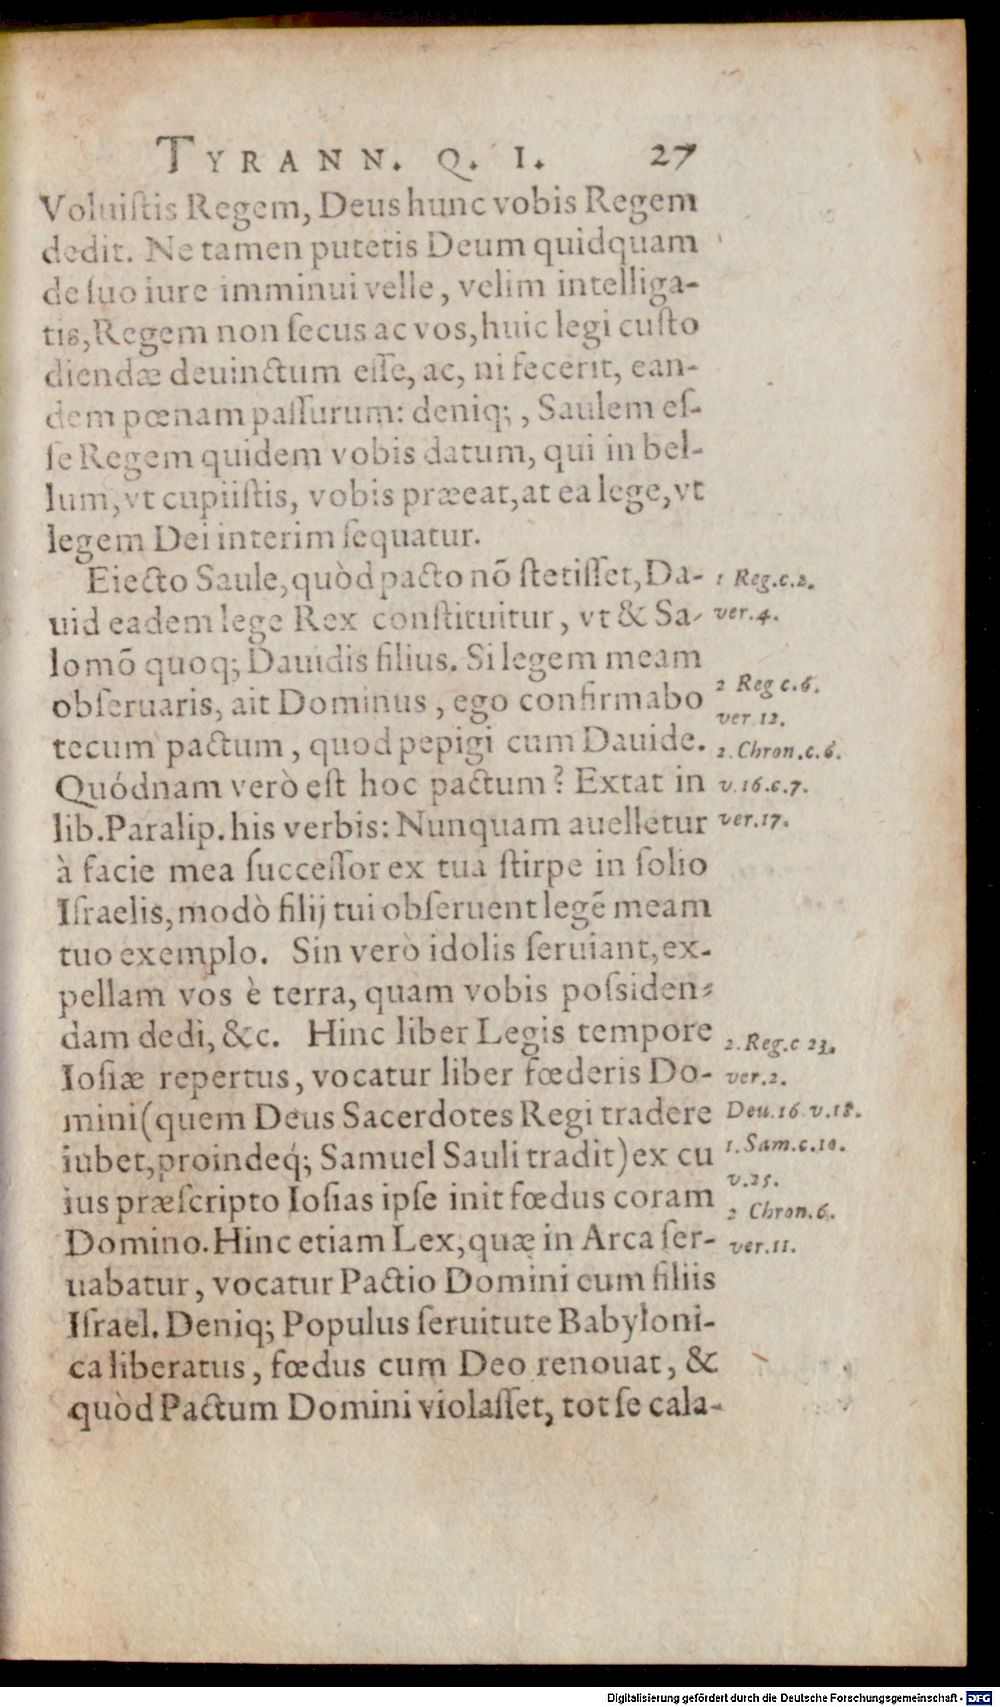 TYRANN. Q. I. 27
Voluiſtis Regem, Deus hunc vobis Regem
dedit. Ne tamen putetis Deum quidquam
de ſuo iure imminui velle, velim intelliga-
tis, Regem non ſecus ac vos, huic legi cuſto
diendæ deuinctum eſſe, ac, ni fecerit, ean-
dem pœnam paſſurum: deniq;, Saulem eſ-
ſe Regem quidem vobis datum, qui in bel-
lum, vt cupiiſtis, vobis præeat, at ea lege, vt
legem Dei interim ſequatur.
Eiecto Saule, quòd pacto nõ ſtetiſſet, Da-
uid eadem lege Rex conſtituitur, vt & Sa-
lomõ quoq; Dauidis filius. Si legem meam
obſeruaris, ait Dominus, ego confirmabo
tecum pactum, quod pepigi cum Dauide.
Quódnam verò eſt hoc pactum? Extat in
lib. Paralip. his verbis: Nunquam auelletur
à facie mea ſucceſſor ex tua ſtirpe in ſolio
Iſraelis, modò filij tui obſeruent legẽ meam
tuo exemplo. Sin verò idolis ſeruiant, ex-
pellam vos è terra, quam vobis poſsiden-
dam dedi, &c. Hinc liber Legis tempore
Ioſiæ repertus, vocatur liber fœderis Do-
mini (quem Deus Sacerdotes Regi tradere
iubet, proindeq́; Samuel Sauli tradit) ex cu
ius præſcripto Ioſias ipſe init fœdus coram
Domino. Hinc etiam Lex, quæ in Arca ſer-
uabatur, vocatur Pactio Domini cum filiis
Iſrael. Deniq; Populus ſeruitute Babyloni-
ca liberatus, fœdus cum Deo renouat, &
quòd Pactum Domini violaſſet, tot ſe cala-
1 Reg.c.2.
ver.4.
2 Reg c.6.
ver 12.
2. Chron.c.6.
v.16.c.7.
ver.17.
2. Reg.c 23.
ver.2.
Deu.16 v.18.
1. Sam.c.10.
v.25.
2 Chron.6.
ver.11.
Digitalisierung gefördert durch die Deutsche Forschungsgemeinschaft - DFG